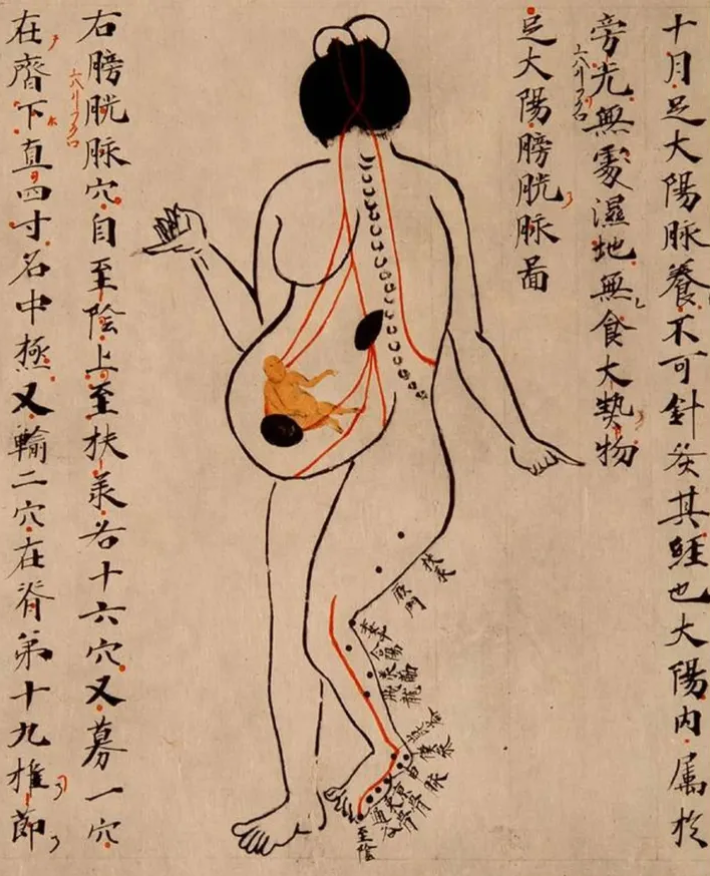 十月足大陽脉養不可針灸其經也大陽内属於
旁光無處濕地無食大熱物
足大陽膀胱脉啚
扶承
殷門
委中
合陽
京骨
束骨
通谷
至陰
右膀胱脉穴自至陰上至扶承各十六穴又募一穴
在齊下直四寸名中極又輸二穴在脊第十九椎節